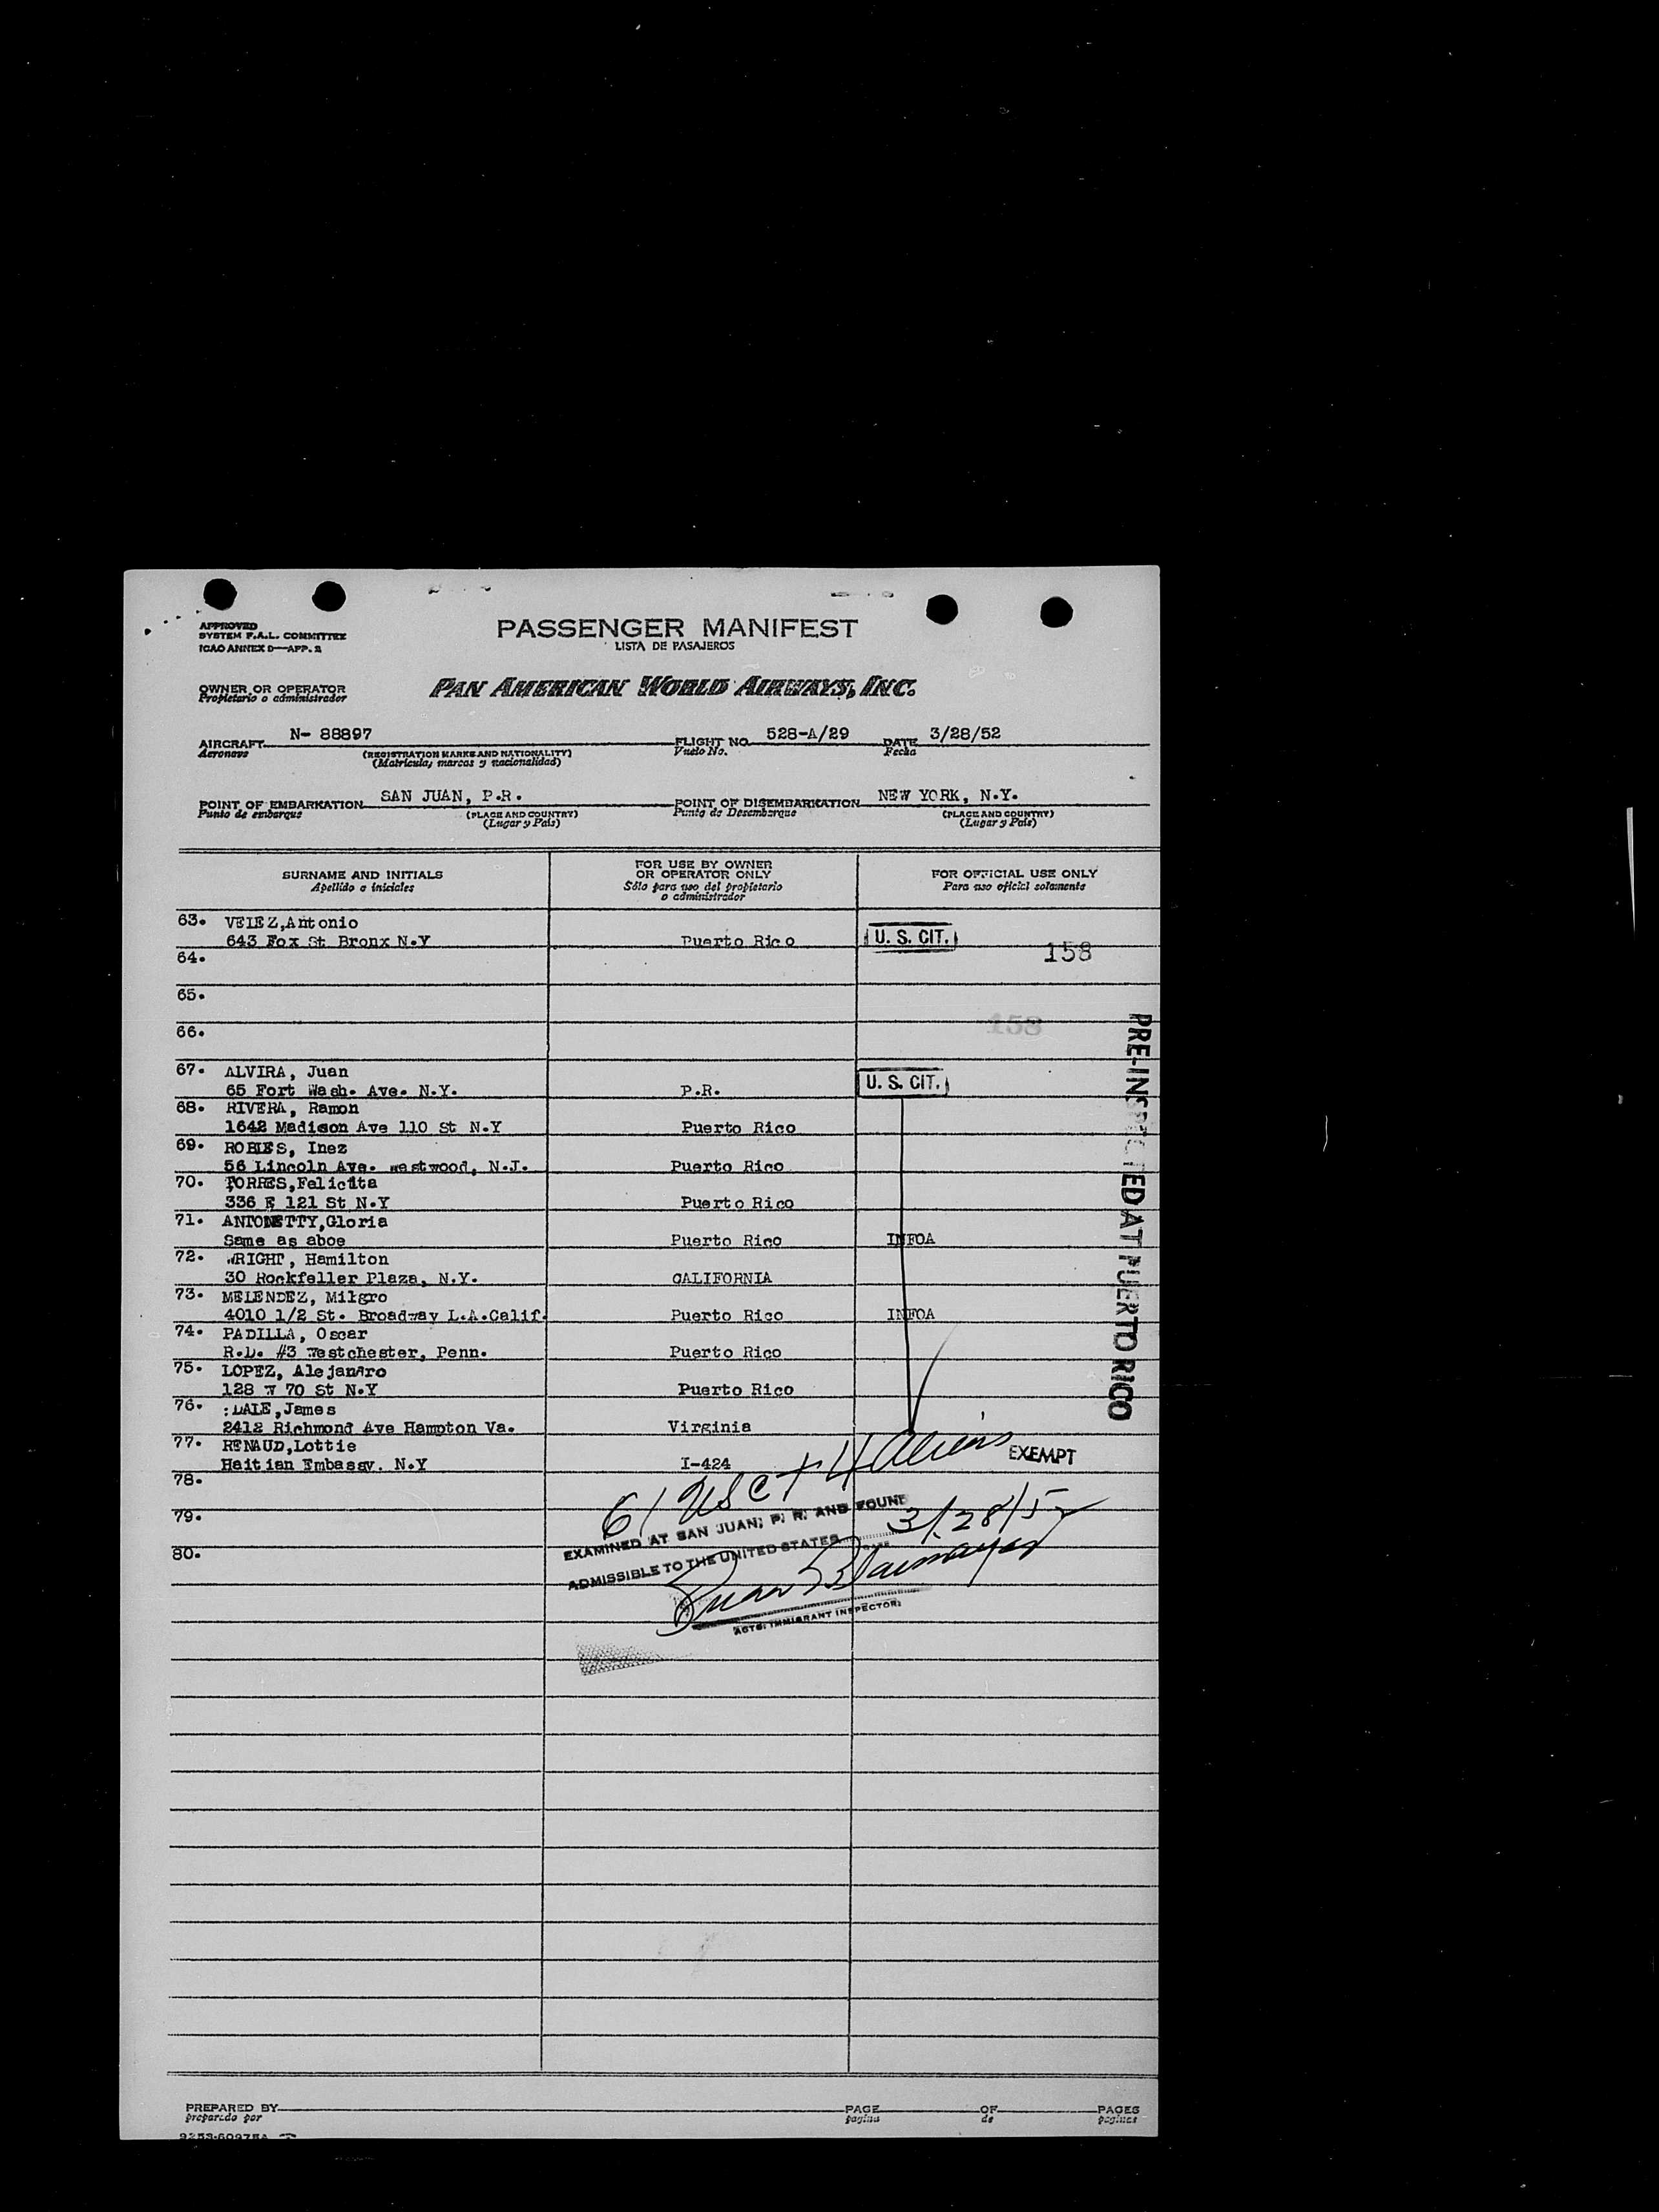 APPROVED
SYSTEM F.A.L. COMMITTEE
ICAO ANNEX 9—APP. 2
PASSENGER MANIFEST
LISTA DE PASAJEROS
OWNER OR OPERATOR
Propietario o administrador
PAN AMERICAN WORLD AIRWAYS, INC.
AIRCRAFT N- 88897 FLIGHT NO. 528-A/29 DATE 3/28/52
Aeronave (REGISTRATION MARKS AND NATIONALITY) Vuelo No. Fecha
(Matrícula, marcas y nacionalidad)
POINT OF EMBARKATION SAN JUAN, P.R. POINT OF DISEMBARKATION NEW YORK, N.Y.
Punto de embarque (PLACE AND COUNTRY) Punto de Desembarque (PLACE AND COUNTRY)
(Lugar y País) (Lugar y País)
SURNAME AND INITIALS
Apellido e iniciales
FOR USE BY OWNER
OR OPERATOR ONLY
Sólo para uso del propietario
o administrador
FOR OFFICIAL USE ONLY
Para uso oficial solamente
63. VELEZ,Antonio
643 Fox St Bronx N.Y Puerto Rico U. S. CIT.
64. 158
65.
66. 158
67. ALVIRA, Juan
65 Fort Wash. Ave. N.Y. P.R. U. S. CIT.
68. RIVERA, Ramon
1642 Madison Ave 110 St N.Y Puerto Rico
69. ROBLES, Inez
56 Lincoln Ave. westwood, N.J. Puerto Rico
70. TORRES,Felicita
336 E 121 St N.Y Puerto Rico
71. ANTONETTY,Gloria
Same as aboe Puerto Rico INFOA
72. WRIGHT, Hamilton
30 Rockfeller Plaza, N.Y. CALIFORNIA
73. MELENDEZ, Milgro
4010 1/2 St. Broadway L.A.Calif. Puerto Rico INFOA
74. PADILLA, Oscar
R.D. #3 Westchester, Penn. Puerto Rico
75. LOPEZ, Alejandro
128 W 70 St N.Y Puerto Rico
76. :DALE,James
2412 Richmond Ave Hampton Va. Virginia
77. RENAUD,Lottie
Haitian Embassy. N.Y I-424 EXEMPT
78.
61 USC + 4 aliens
79.
EXAMINED AT SAN JUAN, P. R. AND FOUND
80.
ADMISSIBLE TO THE UNITED STATES 3/28/52
DATE
ACTG. IMMIGRANT INSPECTOR
PRE-INSPECTED AT PUERTO RICO
PREPARED BY PAGE OF PAGES
preparado por pagina de paginas